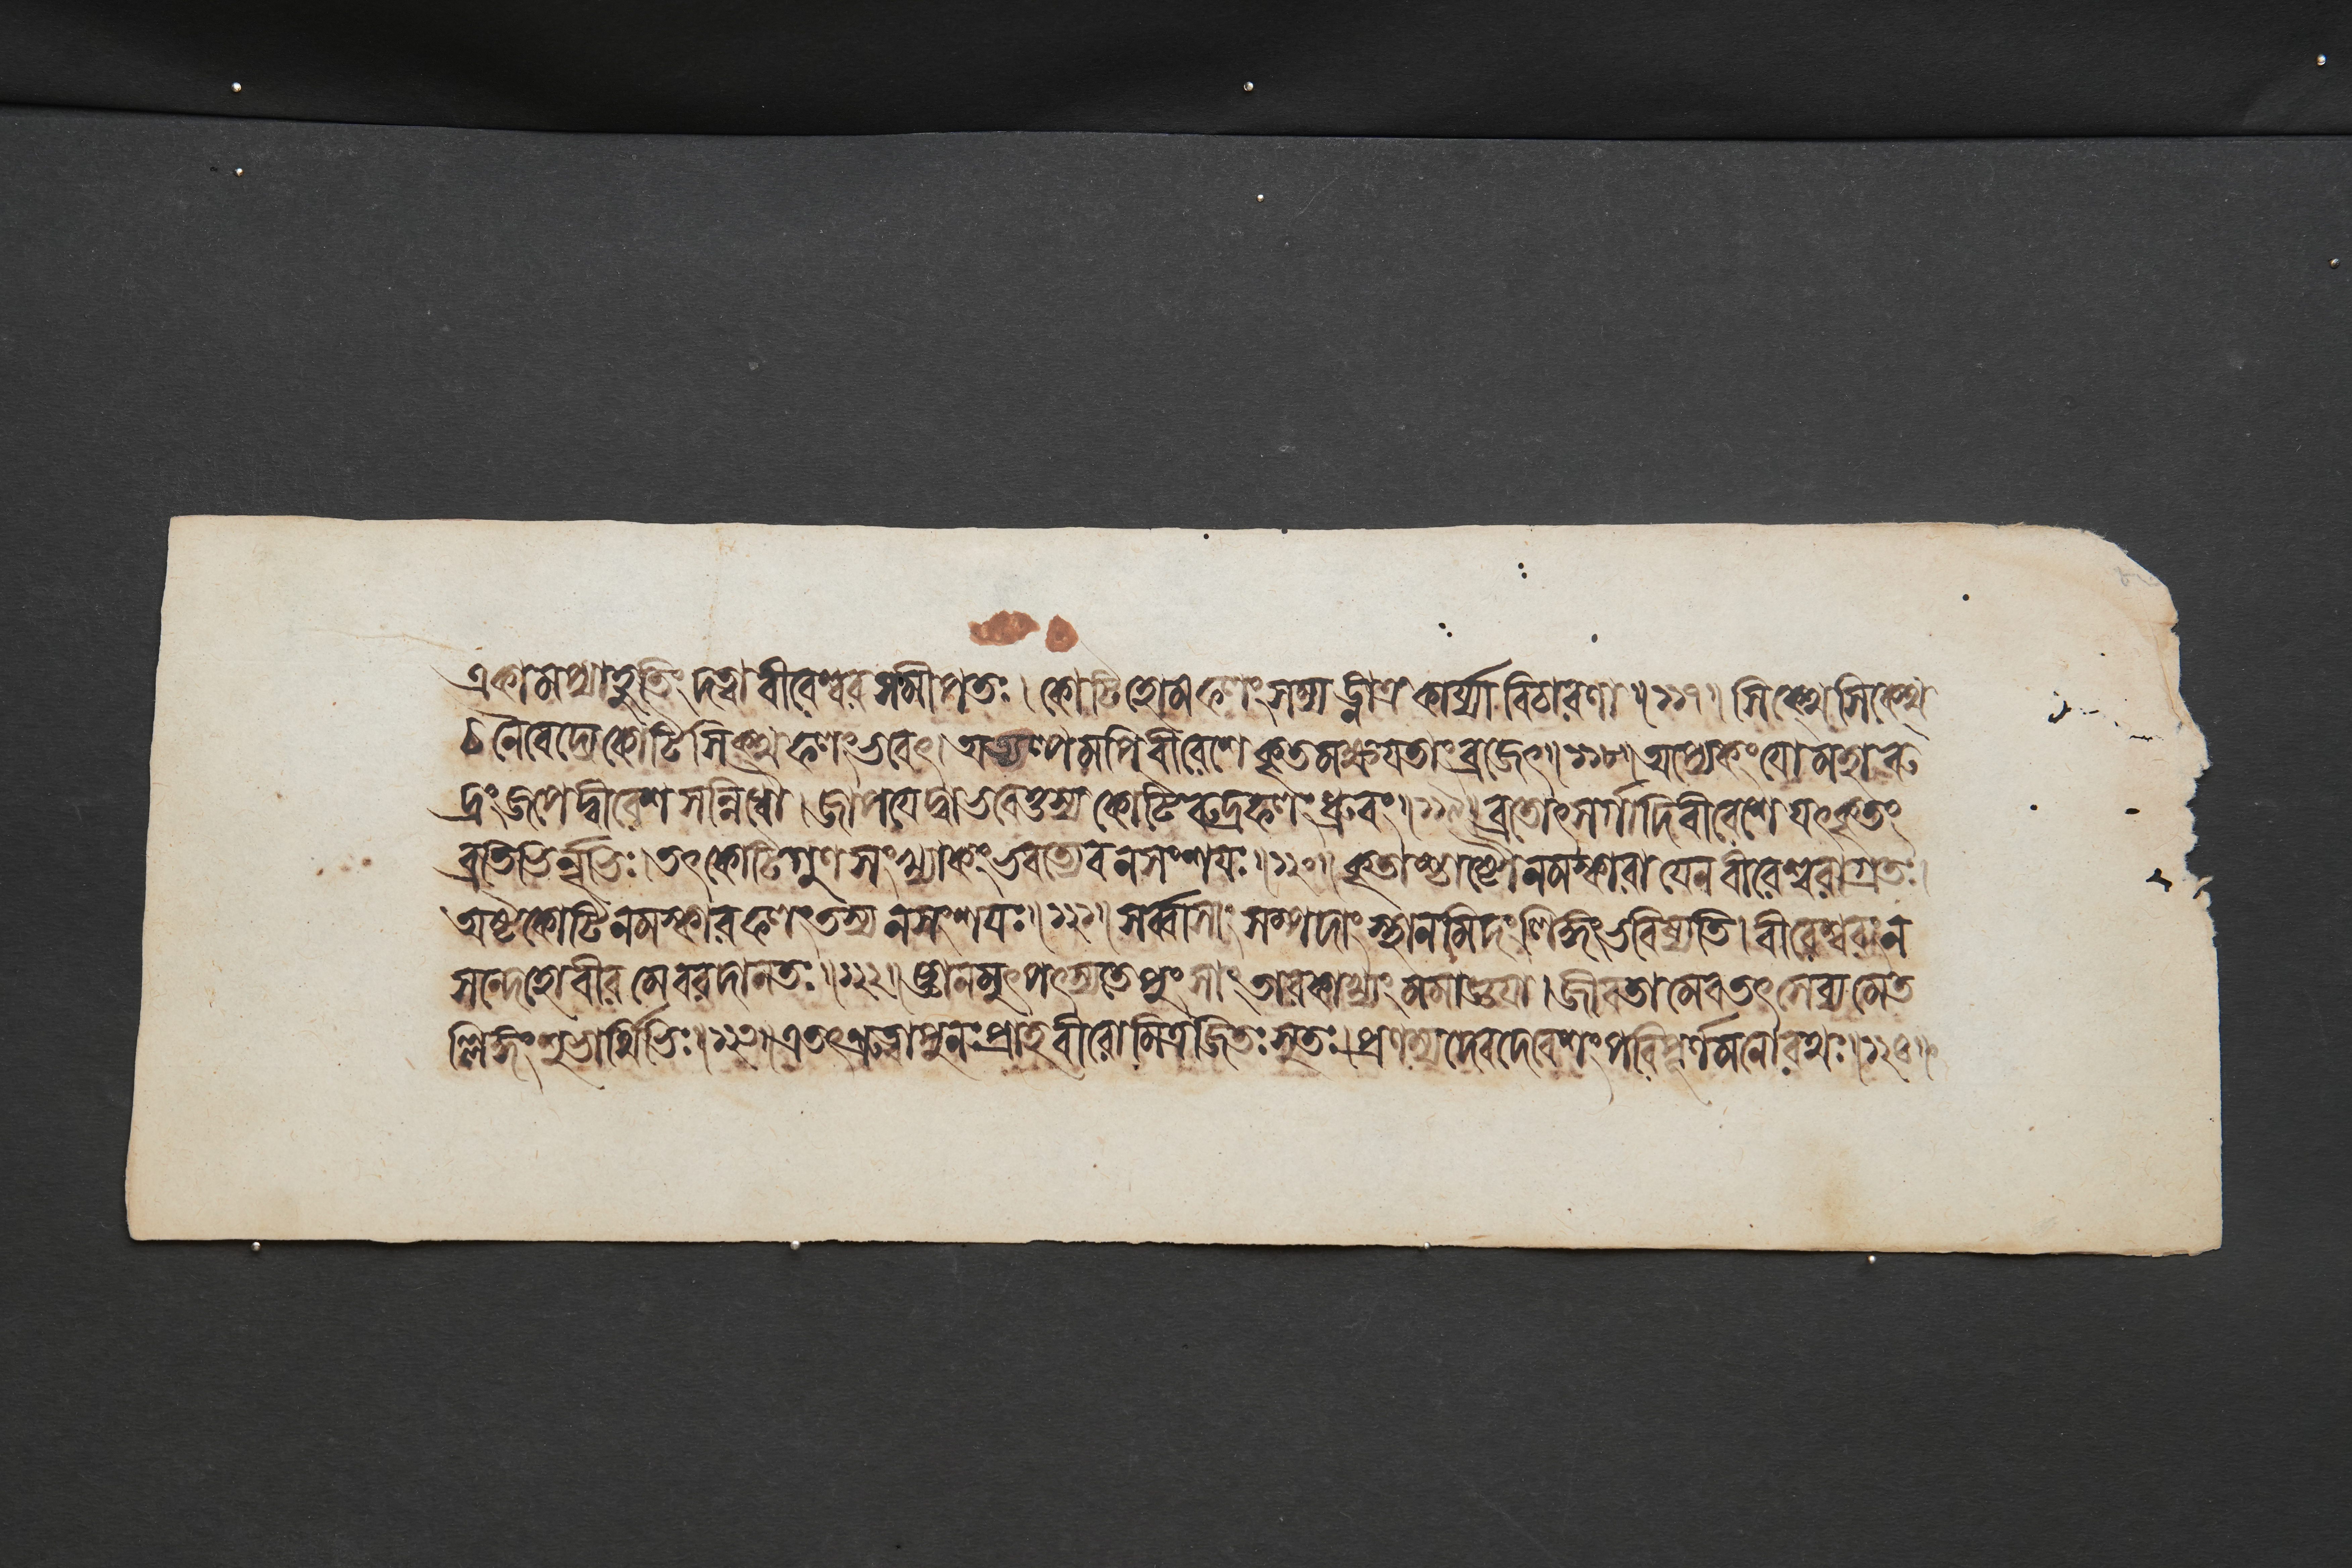 একামপ্যাহুতিং দত্বা বীরেশ্বর সমীপতঃ। কোটিহোমফলং সম্যঙ্নাত্র কার্য্যা বিচারণা॥১১৭॥ সিক্থে সিক্থে
চ নৈবেদ্যে কোটিসিক্থফলং ভবেৎ। অত্যল্পমপি বীরেশে কৃতমক্ষযতাং ব্রজেৎ॥১১৮॥ অপ্যেকং যো মহারু
দ্রং জপেদ্বীরেশ সন্নিধৌ। জাপযেদ্বা ভবেত্তস্য কোটিরুদ্রফলং ধ্রুবং॥১১৯॥ ব্রতোৎসর্গাদি বীরেশে যৎকৃতং
ব্রতিভির্নৃভিঃ। তৎ কোটিগুণ সংখ্যাকং ভবত্যেব ন সংশযঃ॥১২০॥ কৃতাশ্চাষ্টৌ নমস্কারা যেন বীরেশ্বরাগ্রতঃ।
অষ্টকোটিনমস্কারফলং তস্য ন সংশযঃ॥১২১॥ সর্ব্বাসাং সম্পদাং স্থানমিদং লিঙ্গং ভবিষ্যতি। বীরেশ্বরং ন
সন্দেহো বীর মে বরদানতঃ॥১২২॥ জ্ঞানমুৎপৎস্যতে পুংসাং তারকাখ্যং মমাজ্ঞযা। জীবতামেব তৎ সেব্যমেত
ল্লিঙ্গং শুভার্থিভিঃ॥১২৩॥ এতৎ শ্রুত্বা পুনঃ প্রাহ বীরো মিত্রজিতঃ সুতঃ। প্রণম্য দেবদেবেশং পরিপূর্ণমনোরথঃ॥১২৪॥